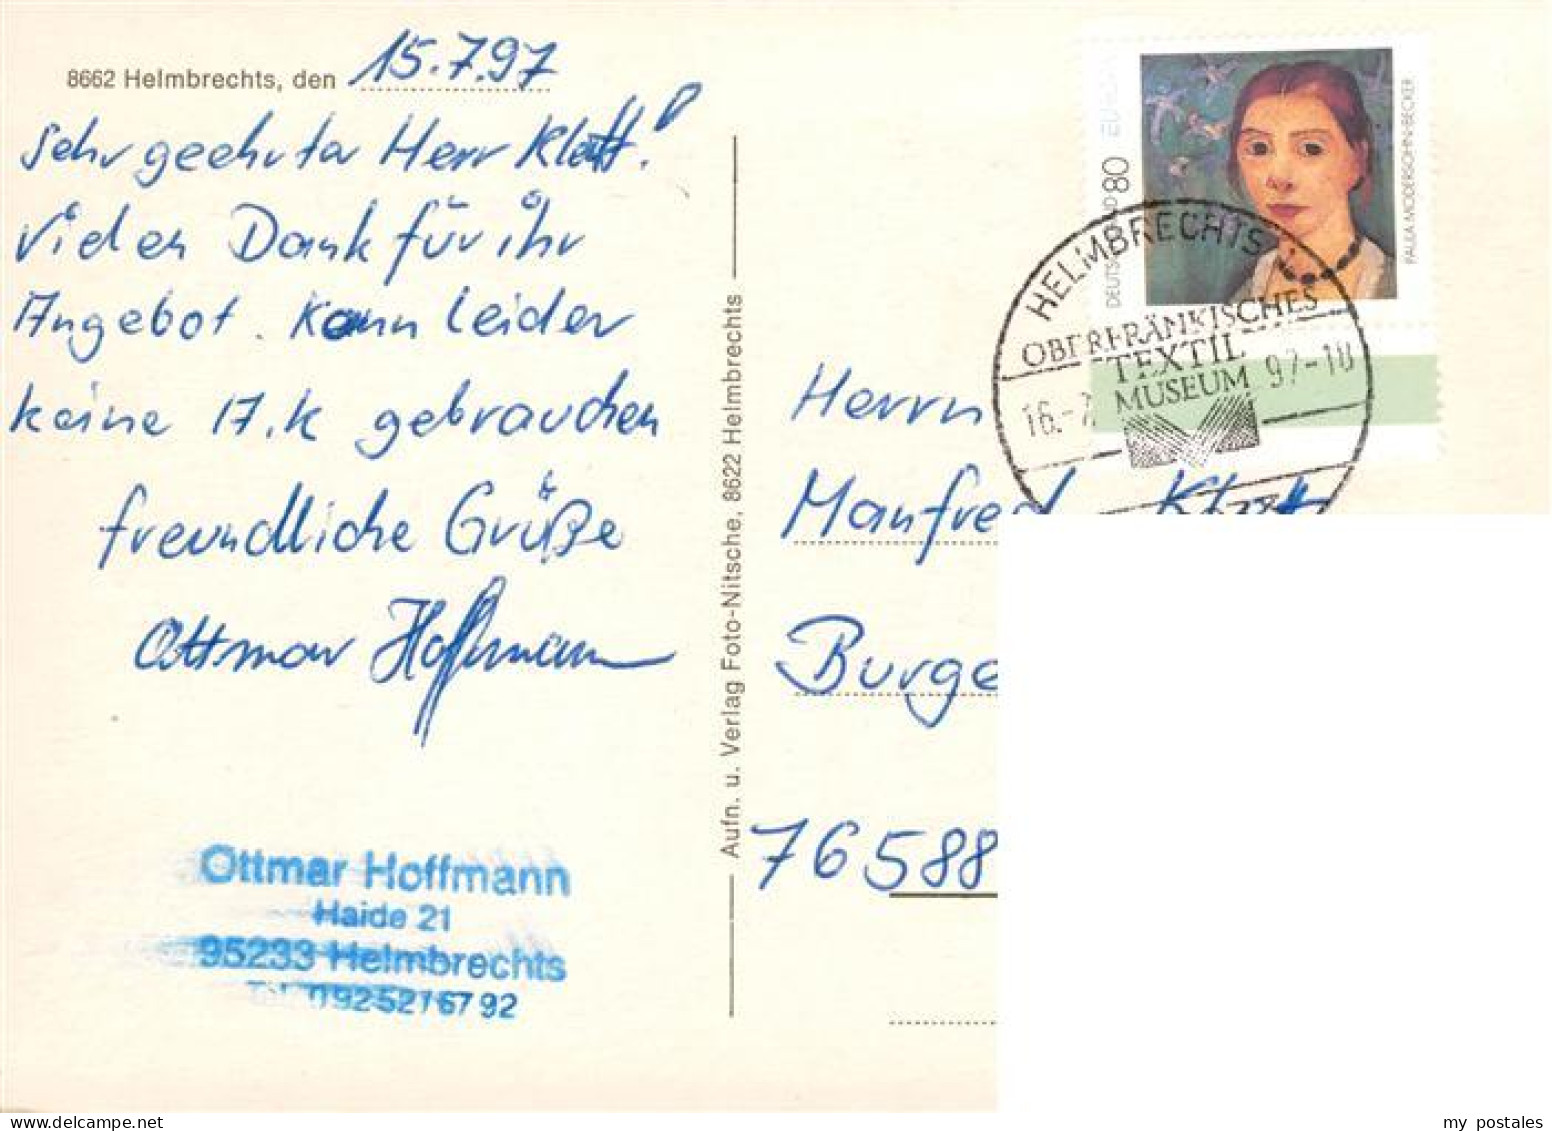 8662 Helmbrechts, den 15.7.97
Sehr geehrter Herr Klatt!
Vielen Dank für ihr
Angebot. Kann leider
keine 17.k gebrauchen
freundliche Grüße
Ottmar Hoffmann
Ottmar Hoffmann
Haide 21
95233 Helmbrechts
Tel. 09252/6792
Aufn. u. Verlag Foto-Nitsche, 8622 Helmbrechts
DEUTSCHLAND 80 EUROPA
PAULA MODERSOHN-BECKER
HELMBRECHTS 1
OBERFRÄNKISCHES
TEXTIL
MUSEUM
16.-7 97-18
Herrn
Manfred Klatt
Burge
76588
my postales